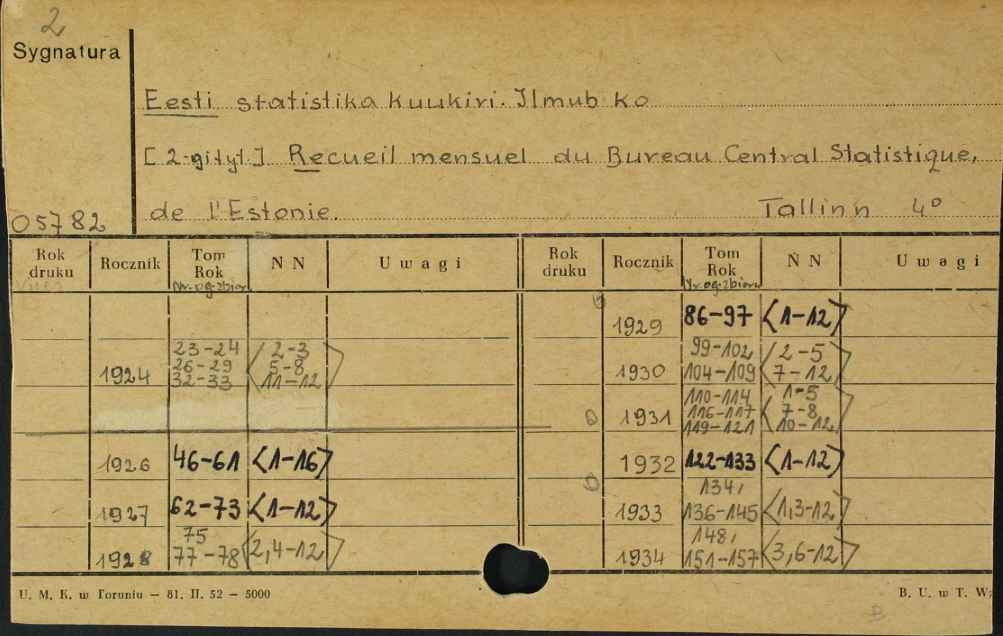 2
Sygnatura
Eesti statistika kuukiri. Ilmub ko
[2-gi tyt.] Recueil mensuel du Bureau Central Statistique,
05782 de l'Estonie. Tallinn 4º
Rok druku Rocznik Tom Rok Nr. og. zbioru N N Uwagi Rok druku Rocznik Tom Rok Nr. og. zbioru N N Uwagi
1929 86-97 <1-12>
1924 23-24 26-29 32-33 <2-3 5-8 11-12>
1930 99-102 104-109 <2-5 7-12>
1931 110-114 116-117 119-121 <1-5 7-8 10-12>
1926 46-61 <1-16>
1932 122-133 <1-12>
1927 62-73 <1-12>
1933 134, 136-145 <1,3-12>
1928 75 77-78 <2,4-12>
1934 148, 151-157 <3,6-12>
U. M. K. w Toruniu — 81. II. 52 — 5000
B. U. w T. W